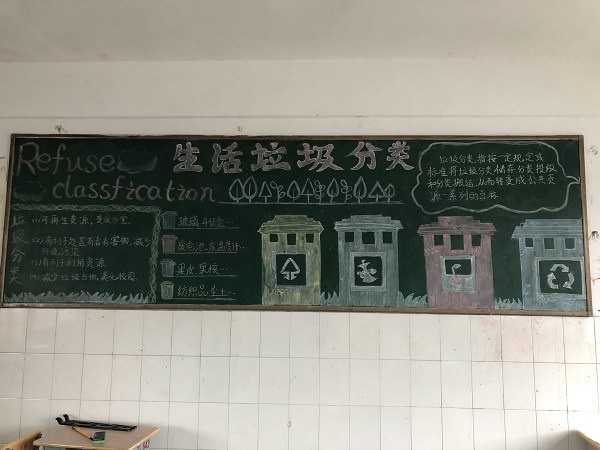 Refuse
classfication
生活垃圾分类
垃圾分类,指按一定规定或
标准将垃圾分类储存分类投放
和分类搬运,从而转变成公共资
源一系列的总称
垃圾分类
(1)可再生资源,变废为宝
(2)有利于处置有毒有害物,减少
环境污染
(3)有利于利用资源
(4)减少垃圾占地,美化校园.
玻璃.书纸…
废电池,水温度计…
果皮,果核…
纺织品,尘土…